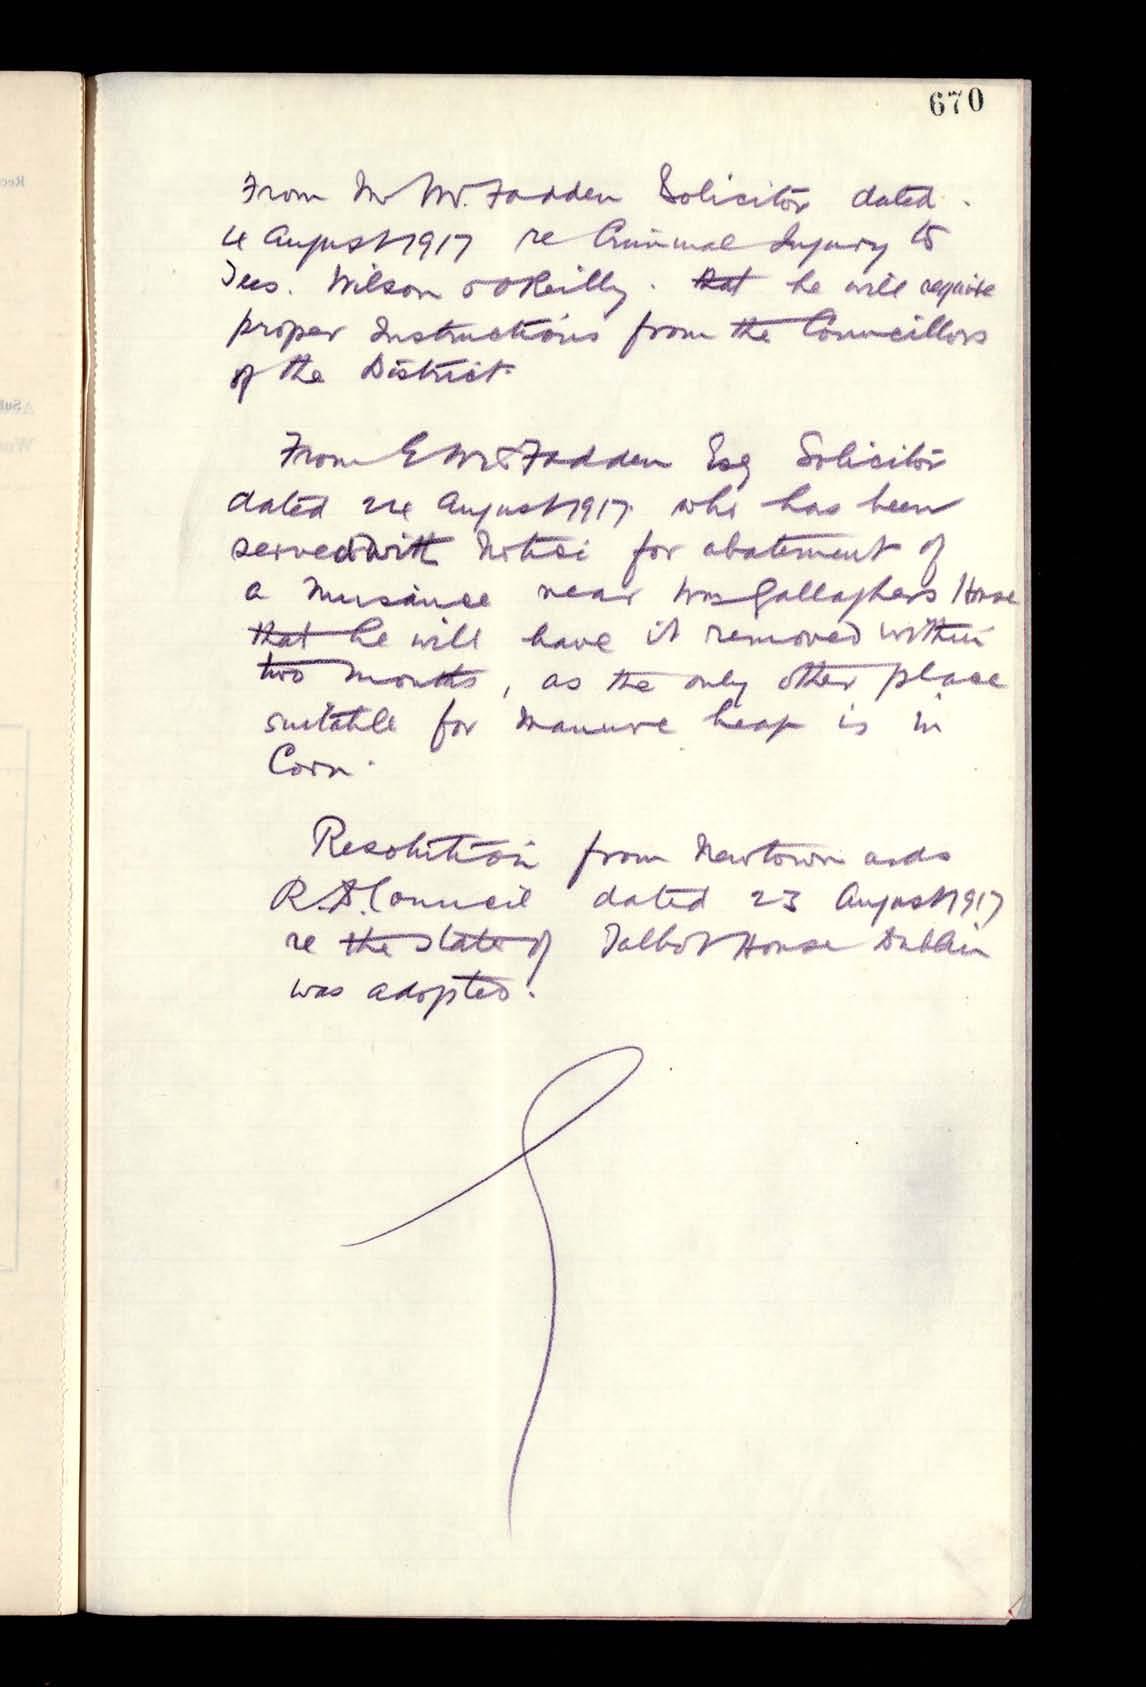 670
From Mr McFadden Solicitor dated
4 August 1917 re Criminal Injury to
Wilson & O Reilly. that he will require
proper Instructions from the Councillors
of the District.
From E McFadden Esq Solicitor
dated 24 August 1917 who has been
served with Notice for abatement of
a Nusaince near Wm Gallaghers House
that he will have it removed within
two months, as the only other place
suitable for Manure heap is in
Corn.
Resolution from Newtown ards
R.D. Council dated 23 August 1917
re the state of Talbot House Dublin
was adopted.